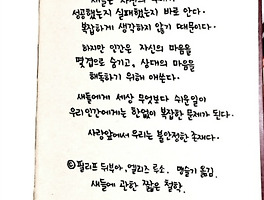 성공했는지 실패했는지 바로 안다.
복잡하게 생각하지 않기 때문이다.
하지만 인간은 자신의 마음을
몇겹으로 숨기고, 상대의 마음을
해독하기 위해 애쓴다.
새들에게 세상 무엇보다 쉬운일이
우리 인간에게는 한없이 복잡한 문제가 된다.
사랑앞에서 우리는 불안정한 존재다.
©필리프 뒤부아, 엘리즈 루소. 맹슬기 옮김.
새들에 관한 짧은 철학.